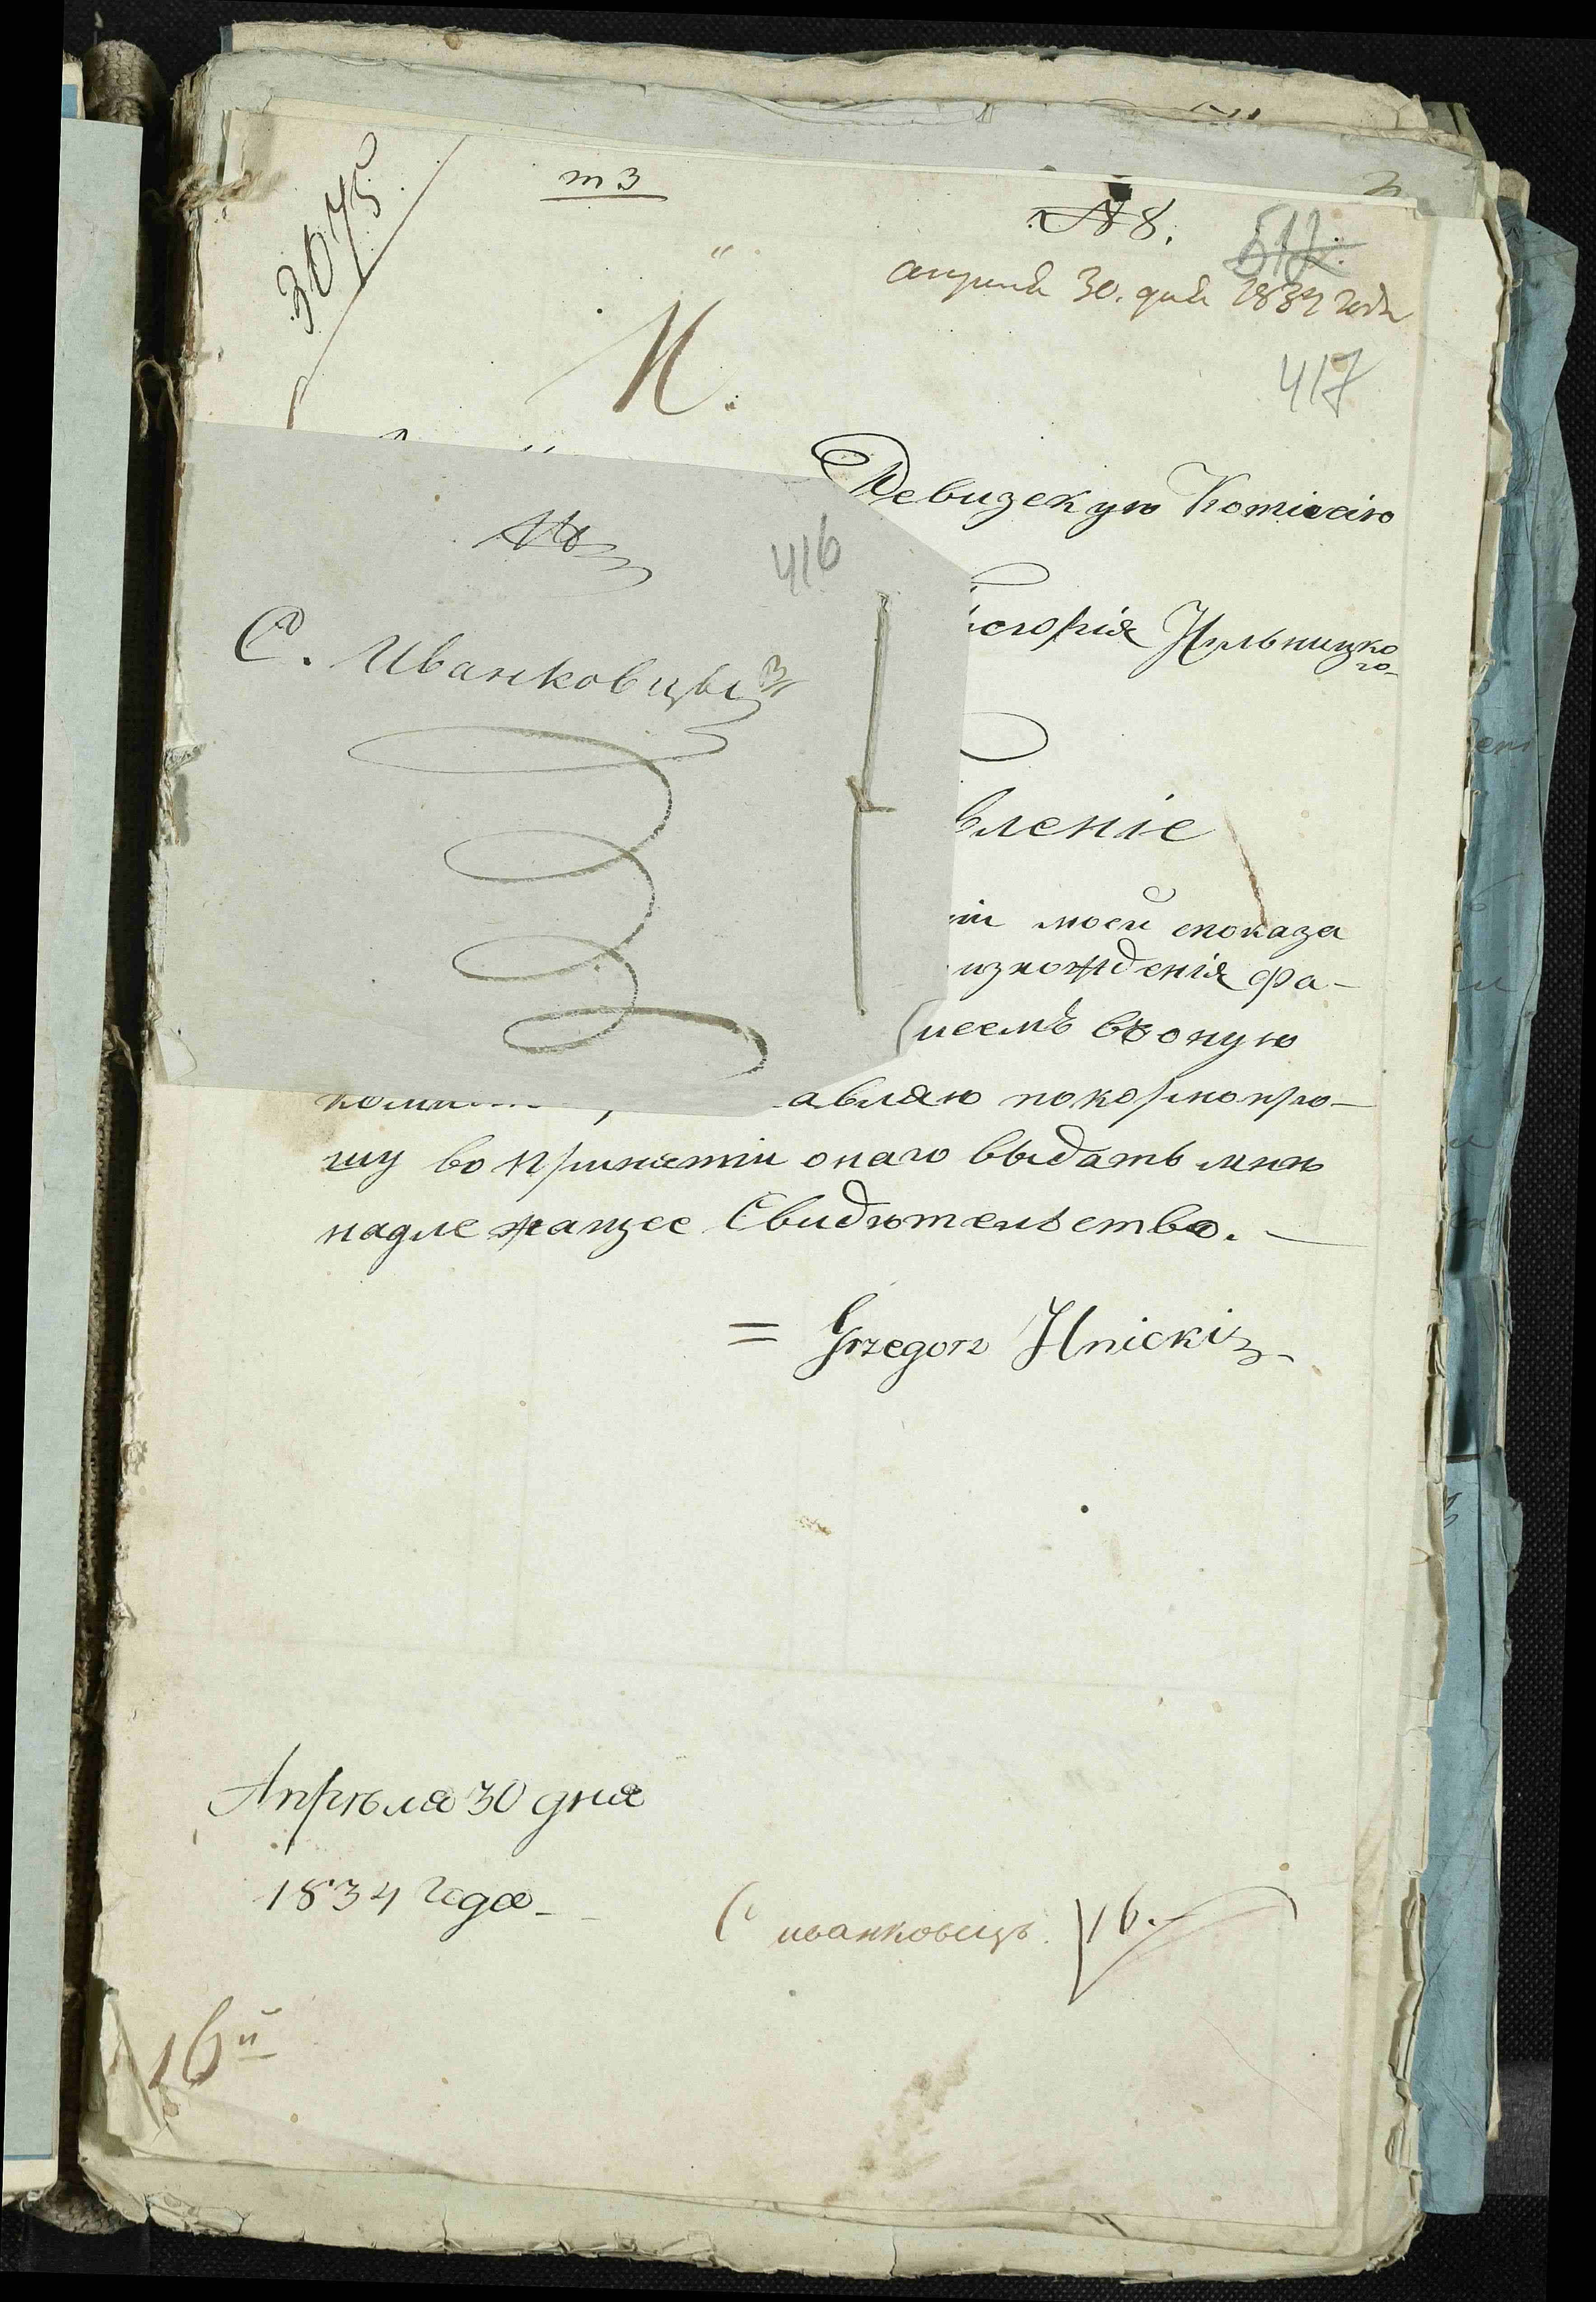 3075
т 3
№ 8.
517.
апреля 30. дня 1834 года
И.
417
Ревизскую Комисію
№
416
С. Иванковцы
горія Ильницко
го
вленіе
ніи моей споказа
изхожденія фа-
неемъ въ оную
авляю покорно про-
шу во принятіи онаго выдать мнѣ
надлежащее Свидѣтельство.
= Grzegorz Ilnicki
Апрѣля 30 дня
1834 года
С иванковецъ. 16.
16й